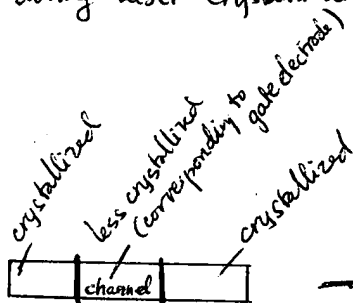 during laser crystalli
crystallized
less crystallized
(corresponding to
gate electrode)
crystallized
channel